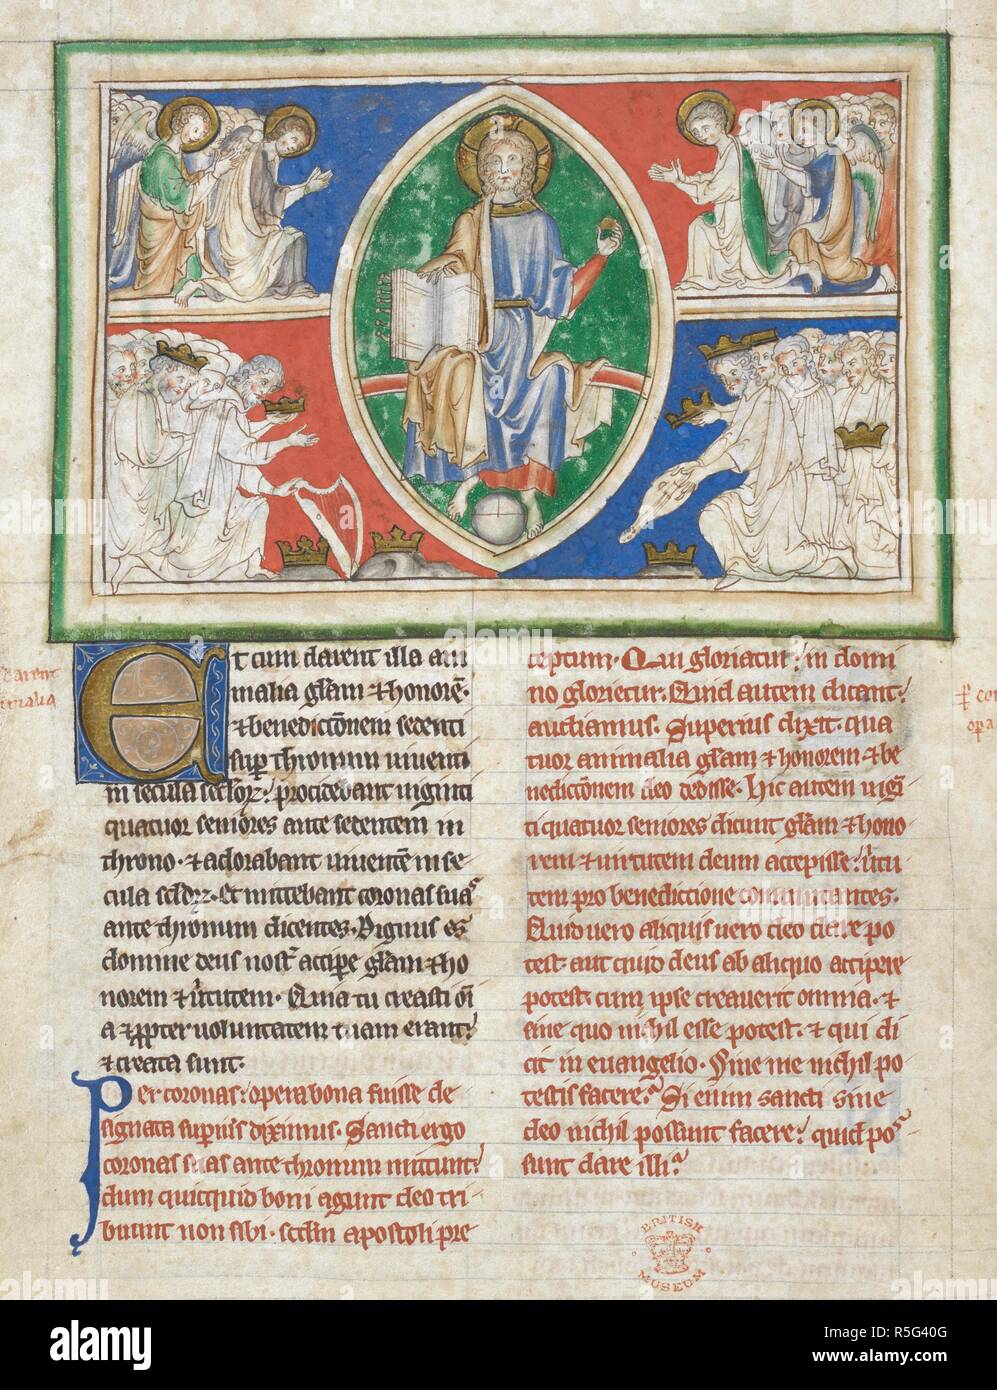 Et cum darent illa ani
malia gl̄am ⁊ honorē·
⁊ benedictōnem sedenti
sup̄ thronum uiuenti
in secula sc̄lor̄ꝝ: procidebant uiginti
quatuor seniores ante sedentem in
throno· ⁊ adorabant uiuentē in se
cula sc̄lor̄ꝝ· et mittebant coronas suas
ante thronum dicentes· Dignus es
domine deus nost̄ accipe gl̄am ⁊ ho
norem ⁊ uirtutem· Quia tu creasti om̄i
a ⁊ ꝓpter uoluntatem tuam erant:
⁊ creata sunt·
Per coronas: opera bona fuisse de
signata superius diximus· Sancti ergo
coronas suas ante thronum mittunt:
dum quicquid boni agunt deo tri
buunt non sibi· sc̄dm apostoli pre
ceptum· Qui gloriatur: in domi
no glorietur· Quid autem dicant:
audiamus· Superius dixit· qua
tuor animalia gl̄am ⁊ honorem ⁊ be
nedictōnem deo dedisse· Hic autem uigī
ti quatuor seniores dicunt gl̄am ⁊ hono
rem ⁊ uirtutem deum accepisse: uirtu
tem pro benedictione commutantes·
Quid uero aliquis uero deo dare po
test· aut quid deus ab aliquo accipere
potest· cum ipse creauerit omnia· ⁊
sine quo nichil esse potest· ⁊ qui di
cit in euangelio· Sine me nichil po
testis facere: Si enim sancti sine
deo nichil possunt facere: quid pos
sunt dare illi:
darent
BRITISH
MUSEUM
alamy
www.alamy.com
R5G40G